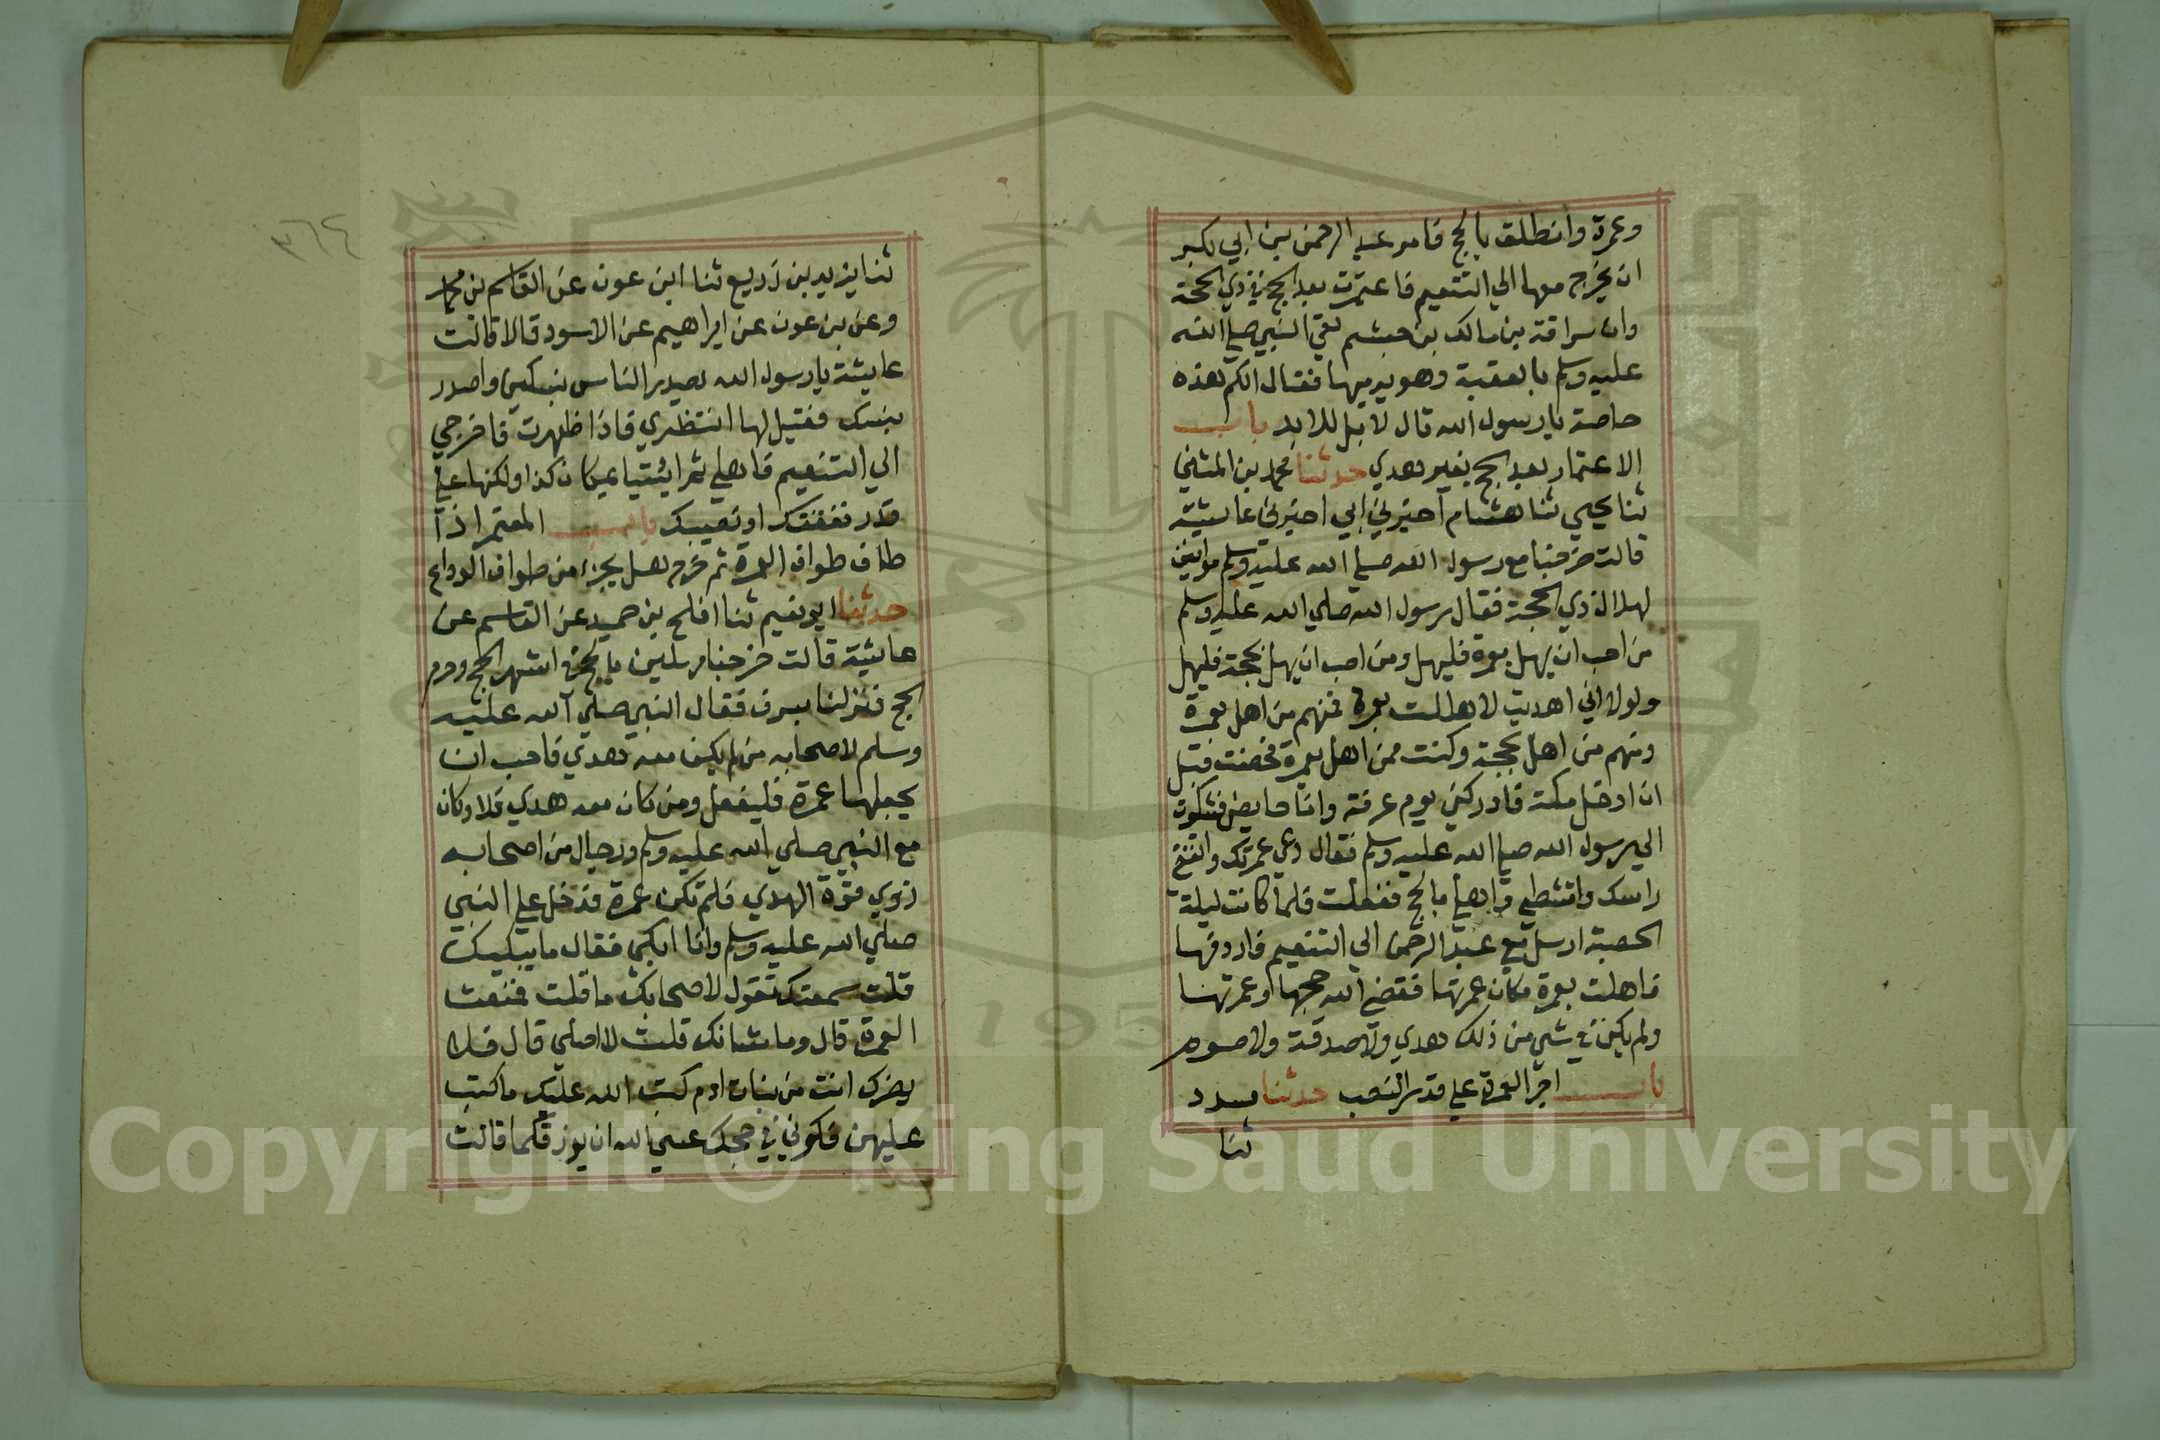 وعمرة وانطلق بالحج فامر عبد الرحمن بن ابي بكر
ان يخرج معها الي التنعيم فاعتمرت بعد الحج في ذي الحجة
وان سراقة بن مالك بن جعشم لقي النبي صلي الله
عليه وسلم بالعقبة وهو يرميها فقال الكم هذه
خاصة يا رسول الله قال لا بل للابد باب
الاعتمار بعد الحج بغير هدي حدثنا محمد بن المثني
ثنا يحيي ثنا هشام اخبرني ابي اخبرتني عايشة
قالت خرجنا مع رسول الله صلي الله عليه وسلم موافين
لهلال ذي الحجة فقال رسول الله صلي الله عليه وسلم
من احب ان يهل بعمرة فليهل ومن احب ان يهل بحجة فليهل
ولولا اني اهديت لاهللت بعمرة فمنهم من اهل بعمرة
ومنهم من اهل بحجة وكنت ممن اهل بعمرة فحضت قبل
ان ادخل مكة فادركني يوم عرفة وانا حايض فشكوت
الي رسول الله صلي الله عليه وسلم فقال دعي عمرتك وانقضي
راسك وامتشطي واهلي بالحج ففعلت فلما كانت ليلة
الحصبة ارسل معي عبد الرحمن الي التنعيم فاردفها
فاهلت بعمرة مكان عمرتها فقضي الله حجها وعمرتها
ولم يكن في شي من ذلك هدي ولا صدقة ولا صوم
باب اجر العمرة علي قدر النصب حدثنا مسدد
ثنا
٣٦٤
ثنا يزيد بن زريع ثنا ابن عون عن القاسم بن محمد
وعن بن عون عن ابراهيم عن الاسود قالا قالت
عايشة يا رسول الله يصدر الناس بنسكين واصدر
بنسك فقيل لها انتظري فاذا طهرت فاخرجي
الي التنعيم فاهلي ثم ايئتيا بمكان كذا ولكنها علي
قدر نفقتك او نصبك باب المعتمر اذا
طاف طواف العمرة ثم خرج هل يجزء من طواف الوداع
حدثنا ابو نعيم ثنا افلح بن حميد عن القاسم عن
عايشة قالت خرجنا مهلين بالحج في اشهر الحج وحرم
الحج فنزلنا بسرف فقال النبي صلي الله عليه
وسلم لاصحابه من لم يكن معه هدي فاحب ان
يجعلها عمرة فليفعل ومن كان معه هدي فلا وكان
مع النبي صلي الله عليه وسلم ورجال من اصحابه
ذوي قوة الهدي فلم تكن عمرة فدخل علي النبي
صلي الله عليه وسلم وانا ابكي فقال ما يبكيك
قلت سمعتك تقول لاصحابك ما قلت فمنعت
العمرة قال وما شانك قلت لا اصلي قال فلا
يضرك انت من بنات ادم كتب الله عليك ما كتب
عليهن فكوني في حجك عسي الله ان يرزقكما قالت